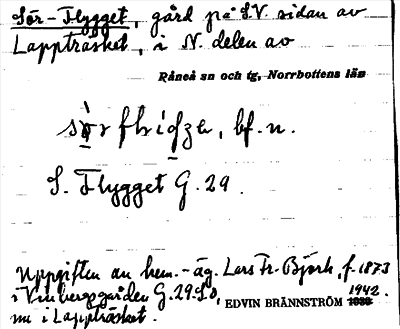 Sör-Flygget, gård på S.V. sidan av
Lappträsket, i N. delen av
Råneå sn och tg, Norrbottens län
bf. n.
S. Flygget G. 29.
Uppgiften av hem.-äg. Lars Fr. Björk, f. 1873
i Vinbergsgården G. 29.
EDVIN BRÄNNSTRÖM 1942.
nu i Lappträsket.